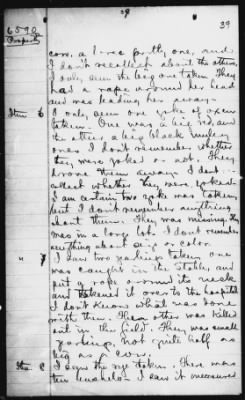 39
6590
cow, a
I don't recollect about the others,
I only seen the big one taken. They
had a rope around her head
and was leading her away.
Item 6
I only seen one yoke of oxen
taken. One was a big red and
the other a big black muley
ones I don't remember whether
they were yoked or not. They
drove them away I dont re-
collect whether they were yoked.
I am certain two yoke was taken
but I don't remember anything
about them. They was missing, they
was in a large lot. I don't remember
anything about size or color.
" 7
I saw two yearlings taken, one
was caught in the stable, and
put a rope around its neck
and taken it over to the hospital
I don't know what was done
with them. The other was killed
out in the field. They was small
yearlings, not quite half as
big as a cow.
I seen the rye taken. There was
ten bushels I saw it measured